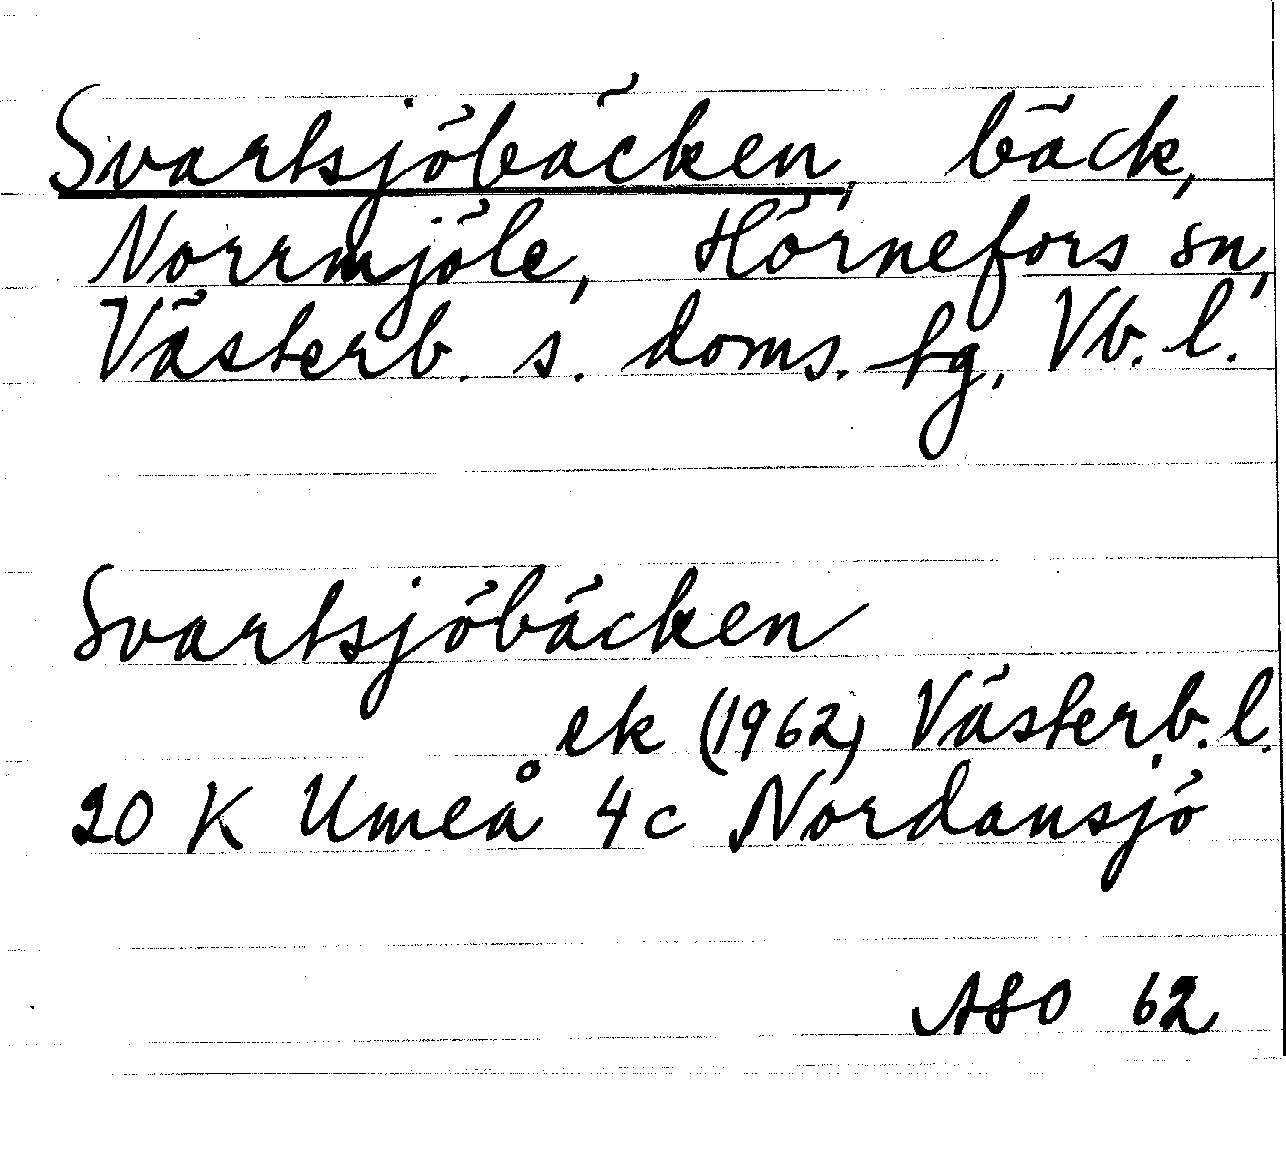 Svartsjöbäcken, bäck,
Norrmjöle, Hörnefors sn,
Västerb. s. doms. tg, Vb. l.
Svartsjöbäcken
ek (1962) Västerb. l.
20 K Umeå 4c Nordansjö
ASO 62